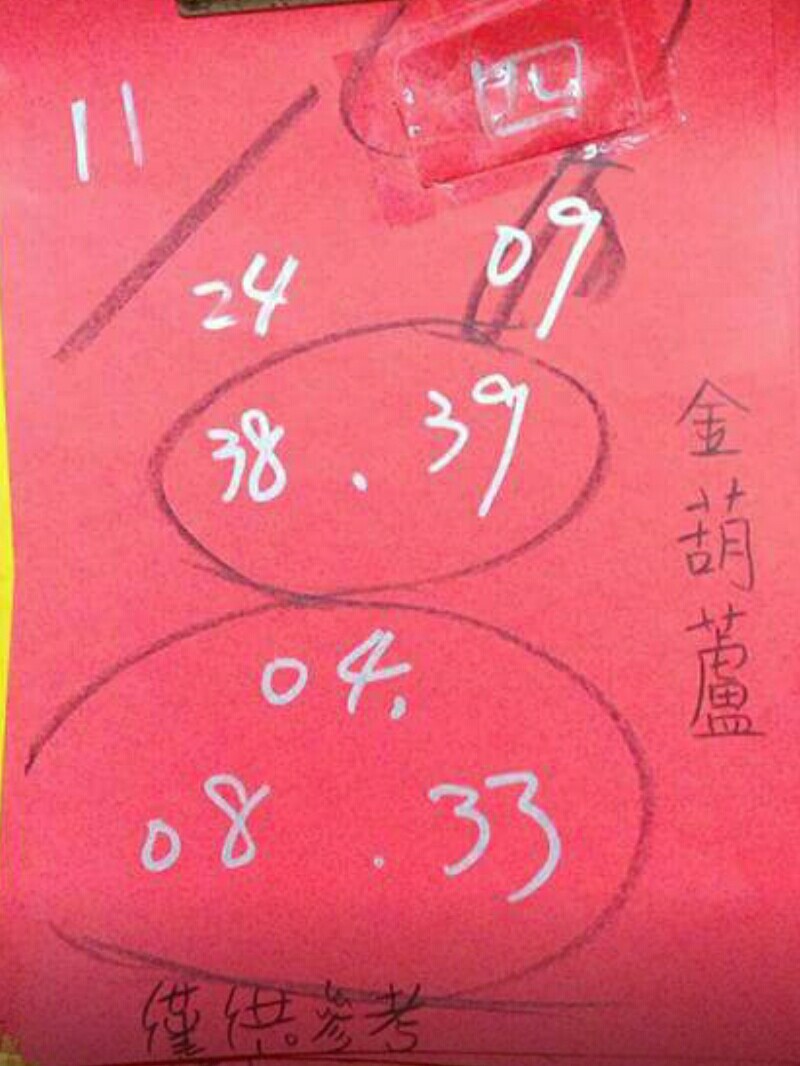 四
11
24 09
38 . 39
04.
08 . 33
金葫蘆
僅供參考